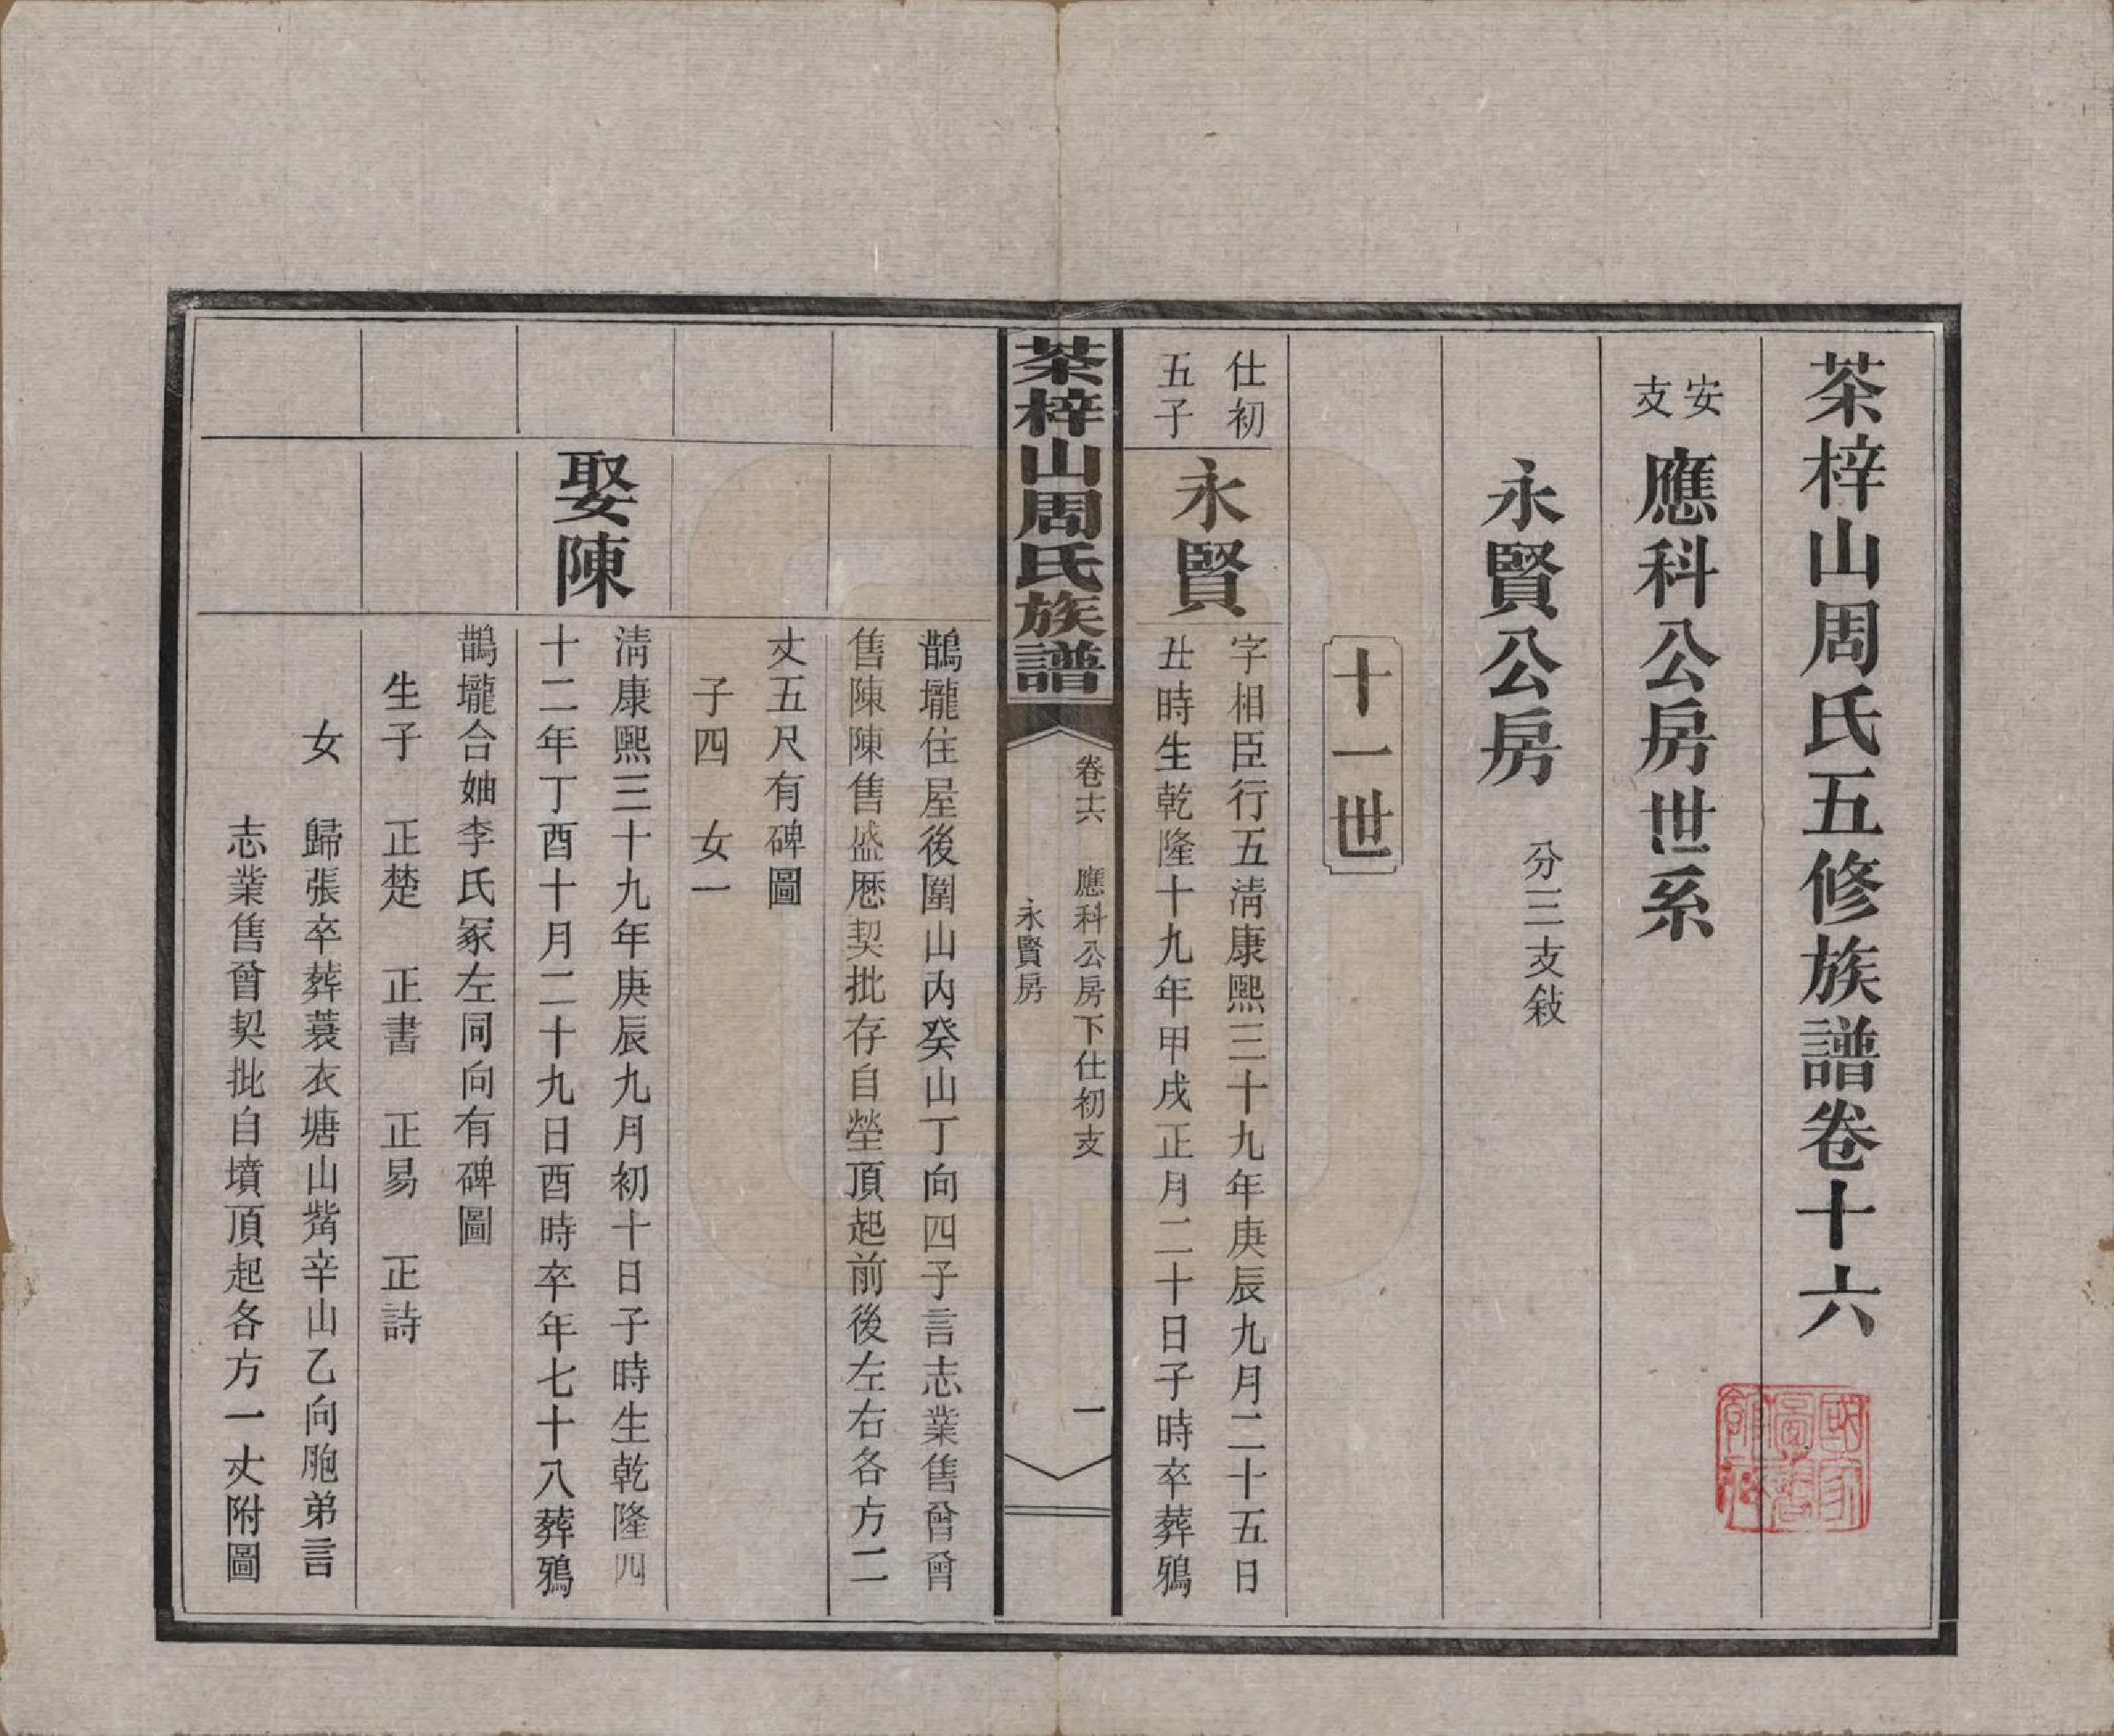 茶梓山周氏五修族譜卷十六
安支
應科公房世系
永賢公房
分三支敍
十一世
仕初
五子
永賢
字相臣行五淸康熙三十九年庚辰九月二十五日
丑時生乾隆十九年甲戌正月二十日子時卒葬鴉
茶梓山周氏族譜
卷十六 應科公房下仕初支 一
永賢房
鵲壠住屋後圍山內癸山丁向四子言志業售曾曾
售陳陳售盛歷契批存自塋頂起前後左右各方二
丈五尺有碑圖
子四 女一
娶陳
淸康熙三十九年庚辰九月初十日子時生乾隆四
十二年丁酉十月二十九日酉時卒年七十八葬鴉
鵲壠合妯李氏冢左同向有碑圖
生子 正楚 正書 正易 正詩
女 歸張卒葬蓑衣塘山觜辛山乙向胞弟言
志業售曾契批自墳頂起各方一丈附圖
國家圖書館藏